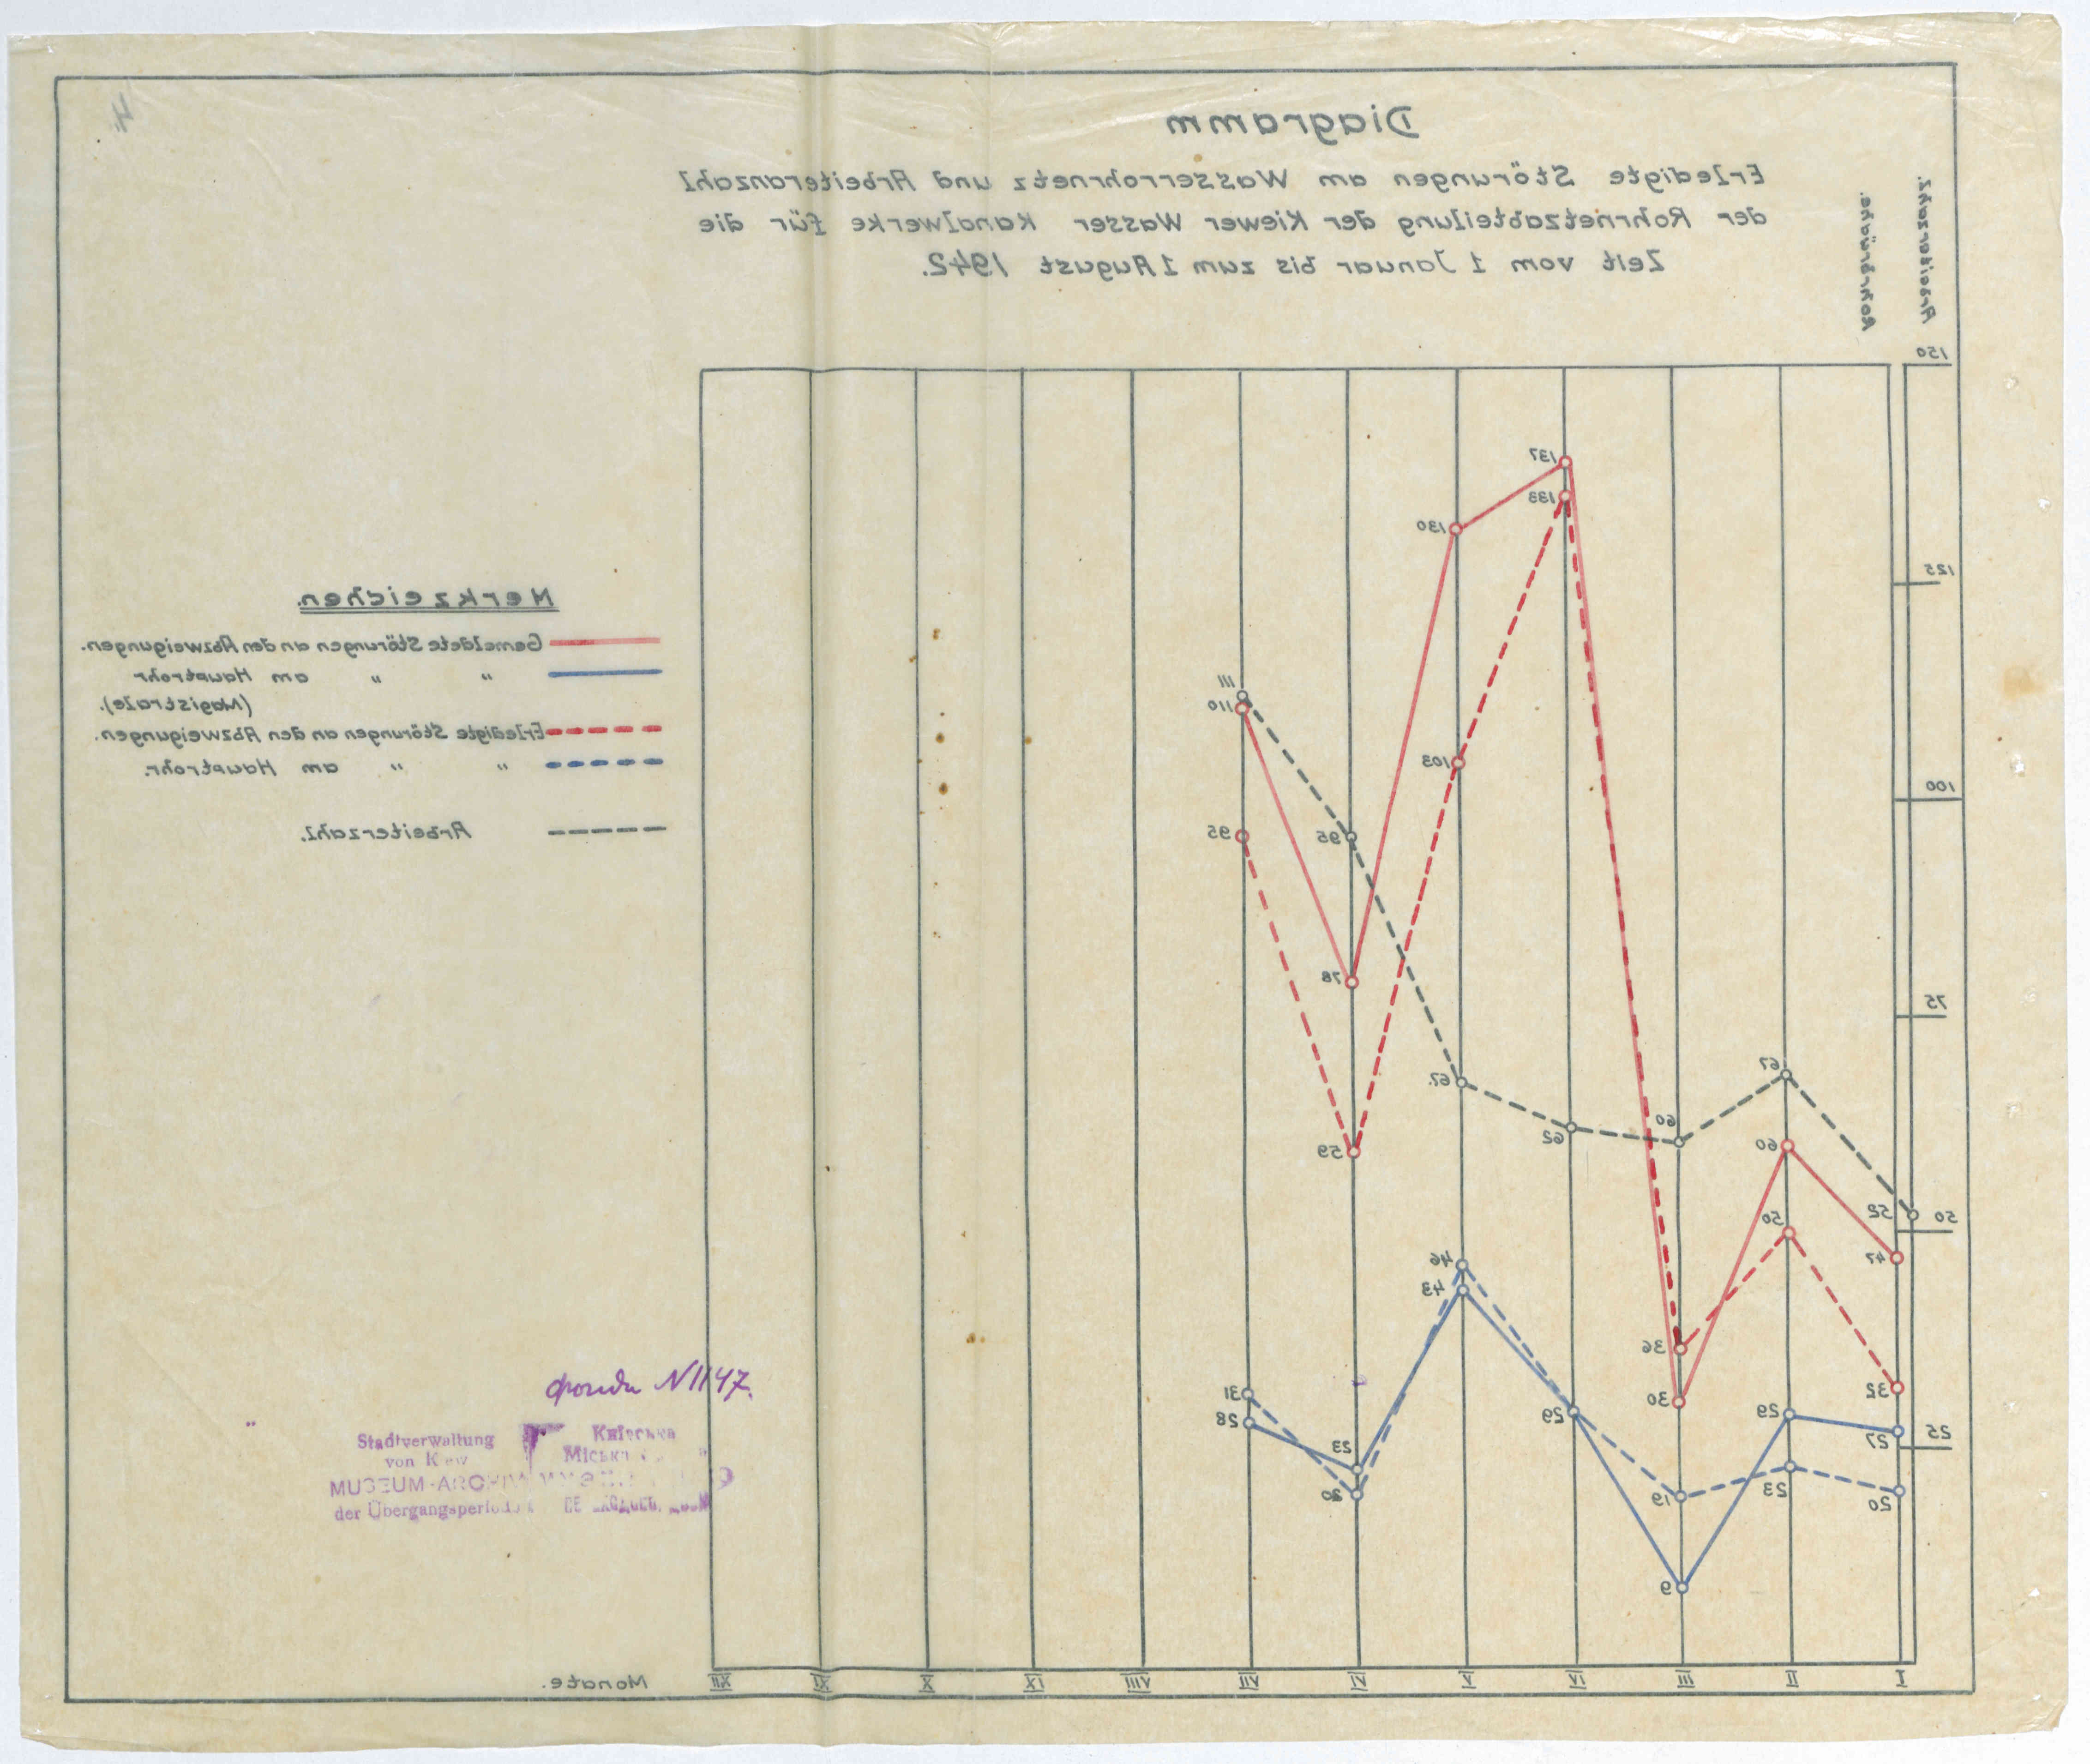 4.
Diagramm
Erledigte Störungen am Wasserrohrnetz und Arbeiteranzahl
der Rohrnetzabteilung der Kiewer Wasser Kanalwerke für die
Zeit vom 1 Januar bis zum 1 August 1942.
Arbeiterzahl.
Rohrbrüche.
150
125
100
75
50
25
52
67
60
62
67.
95
111
47
60
30
137
130
78
110
32
50
36
133
103
59
95
27
29
9
29
43
23
28
20
23
19
46
20
31
I
II
III
IV
V
VI
VII
VIII
IX
X
XI
XII
Monate.
Merkzeichen.
Gemeldete Störungen an den Abzweigungen.
" " am Hauptrohr
(Magistrale).
Erledigte Störungen an den Abzweigungen.
" " am Hauptrohr.
Arbeiterzahl.
N1147.
Stadtverwaltung
von Kiew
MUSEUM-ARCHIV
der Übergangsperiode